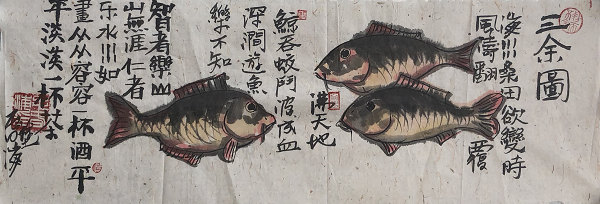 三余圖
滄川桑田欲變時
風濤翻
覆
沸天地
鯨吞蛟鬥波成血
深澗遊魚
樂不知
智者樂山
山無涯仁者
乐水川如
畫从从容容一杯酒平
平淡淡一杯